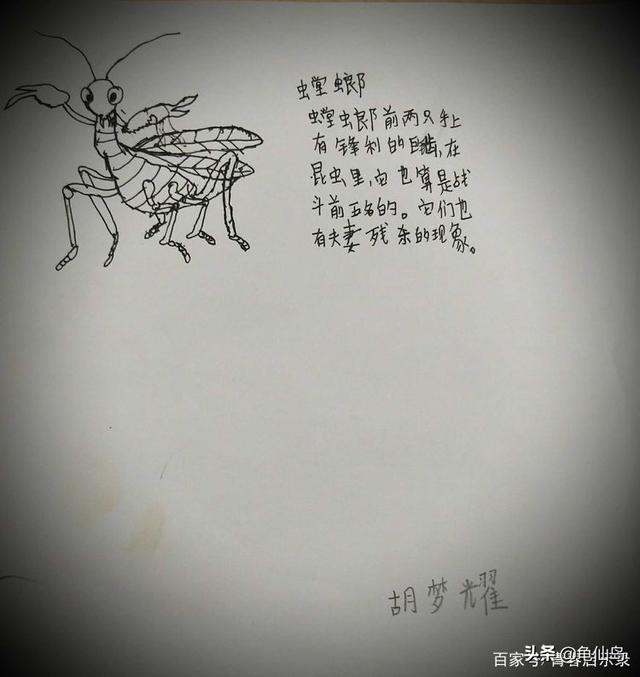 螳螂
螳螂前两只手上
有锋利的巨齿,在
昆虫里,它也算是战
斗前五名的。它们也
有夫妻残杀的现象。
胡梦耀
头条@龟仙岛
百家号/青春启示录